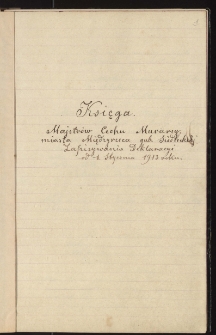 Księga.
Majstrów Cechu Murarzy
miasta Międzyrzeca gub. Siedleckiej
Zapisywania Deklaracyi
od 1 Stycznia 1913 roku.